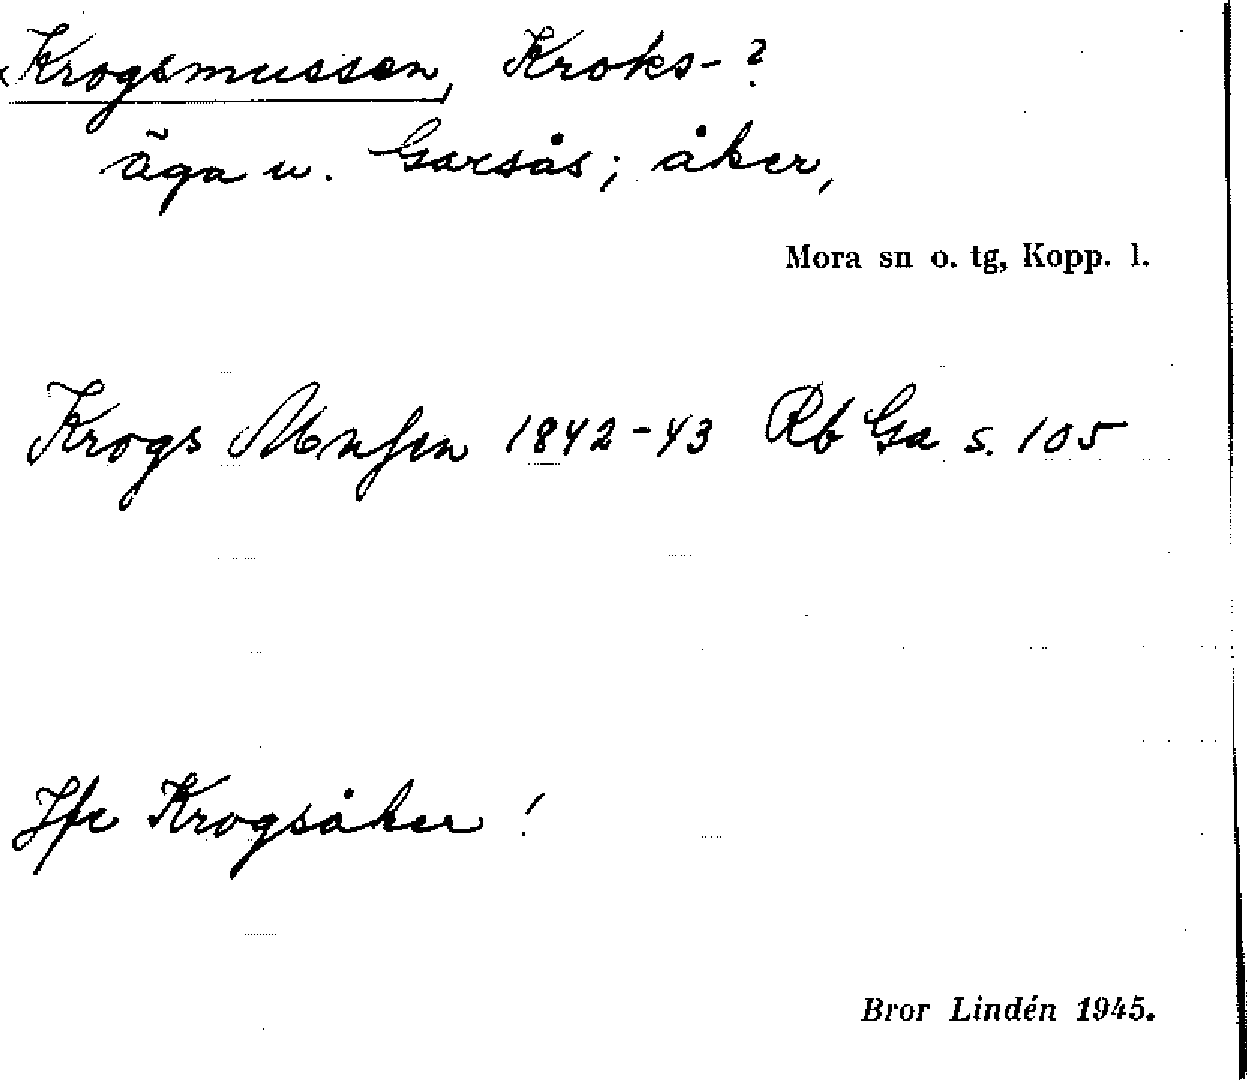 Krogsmussen, Kroks-?
äga u. Garsås; åker,
Mora sn o. tg, Kopp. l.
Krogs Mussen 1842-43 Rb Ga s. 105
Jfr Krogsåker!
Bror Lindén 1945.